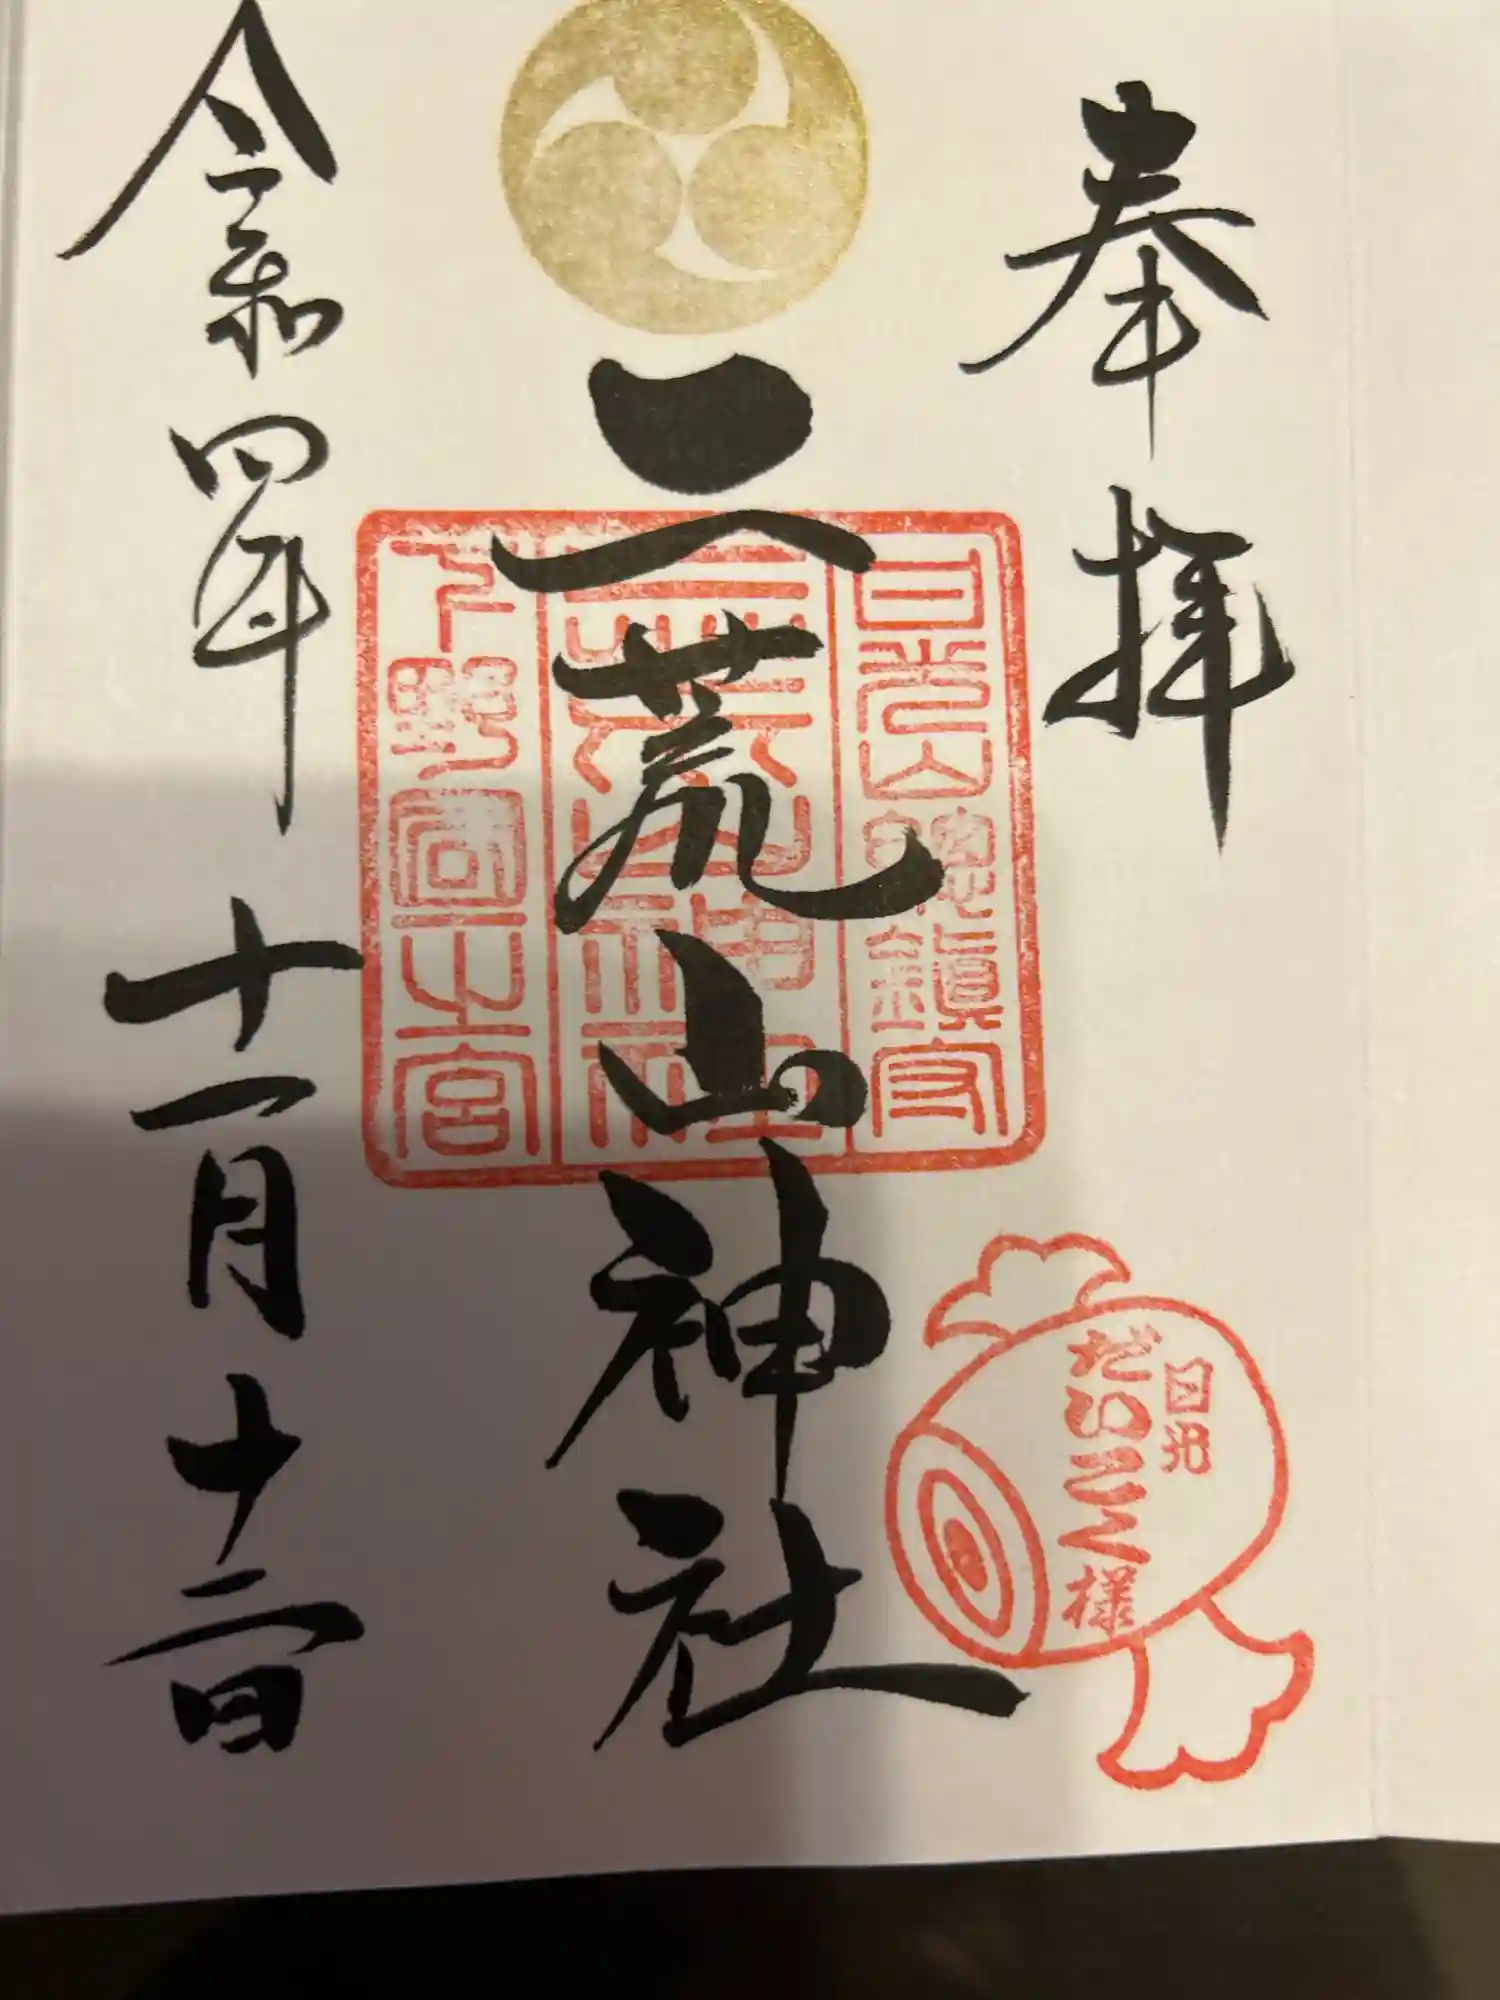 奉拝
日光山総鎮守
二荒山神社
下野國一之宮
二荒山神社
日光
だいこく様
令和四年十一月十二日